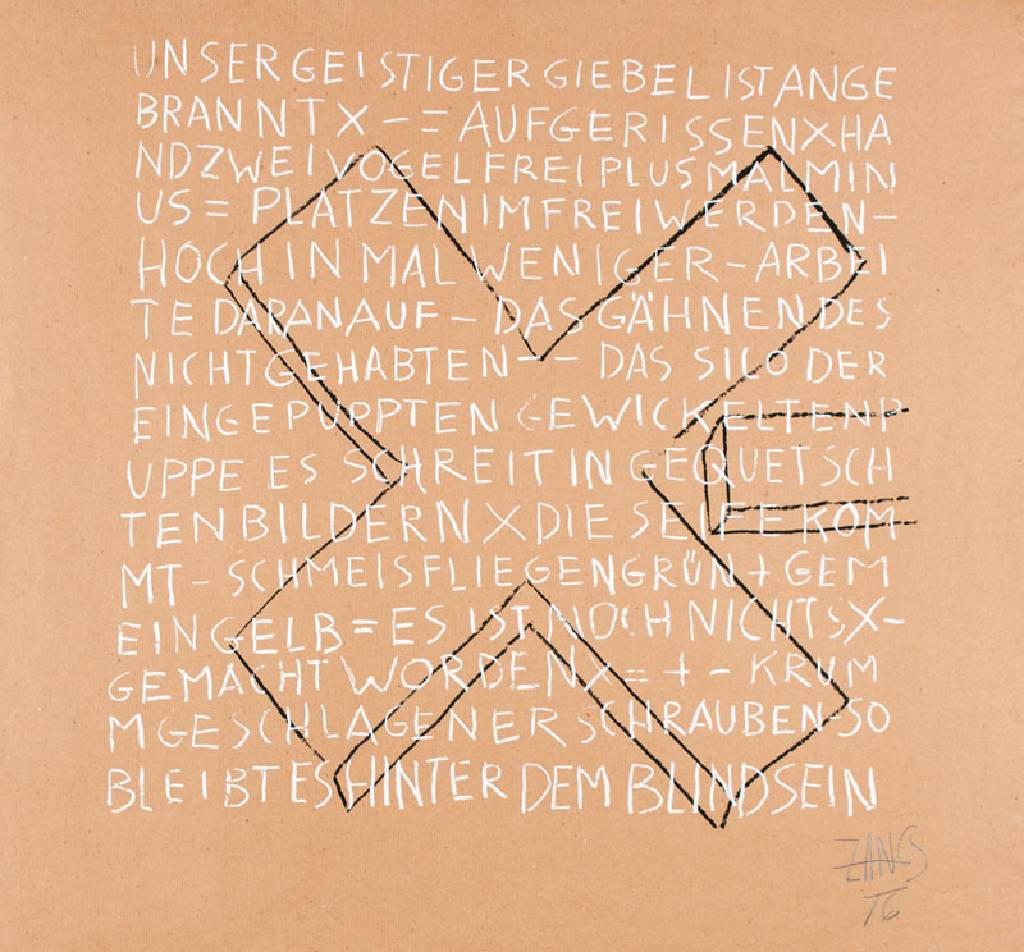 UNSERGEISTIGERGIEBELISTANGE
BRANNTX-=AUFGERISSENXHA
NDZWEIVOGELFREIPLUSMALMIN
US=PLATZENIMFREIWERDEN-
HOCHINMALWENIGER-ARBEI
TEDARANAUF-DASGÄHNENDES
NICHTGEHABTEN-- DAS SILO DER
EINGEPUPPTEN GEWICKELTENP
UPPE ES SCHREIT IN GEQUETSCH
TENBILDERNXDIE SEIFEKOM
MT-SCHMEISFLIEGENGRÜN+GEM
EINGELB=ES IST NOCH NICHTSX-
GEMACHT WORDENX=+-KRUM
MGESCHLAGENERSCHRAUBEN-SO
BLEIBTESHINTER DEM BLINDSEIN
ZANGS
76